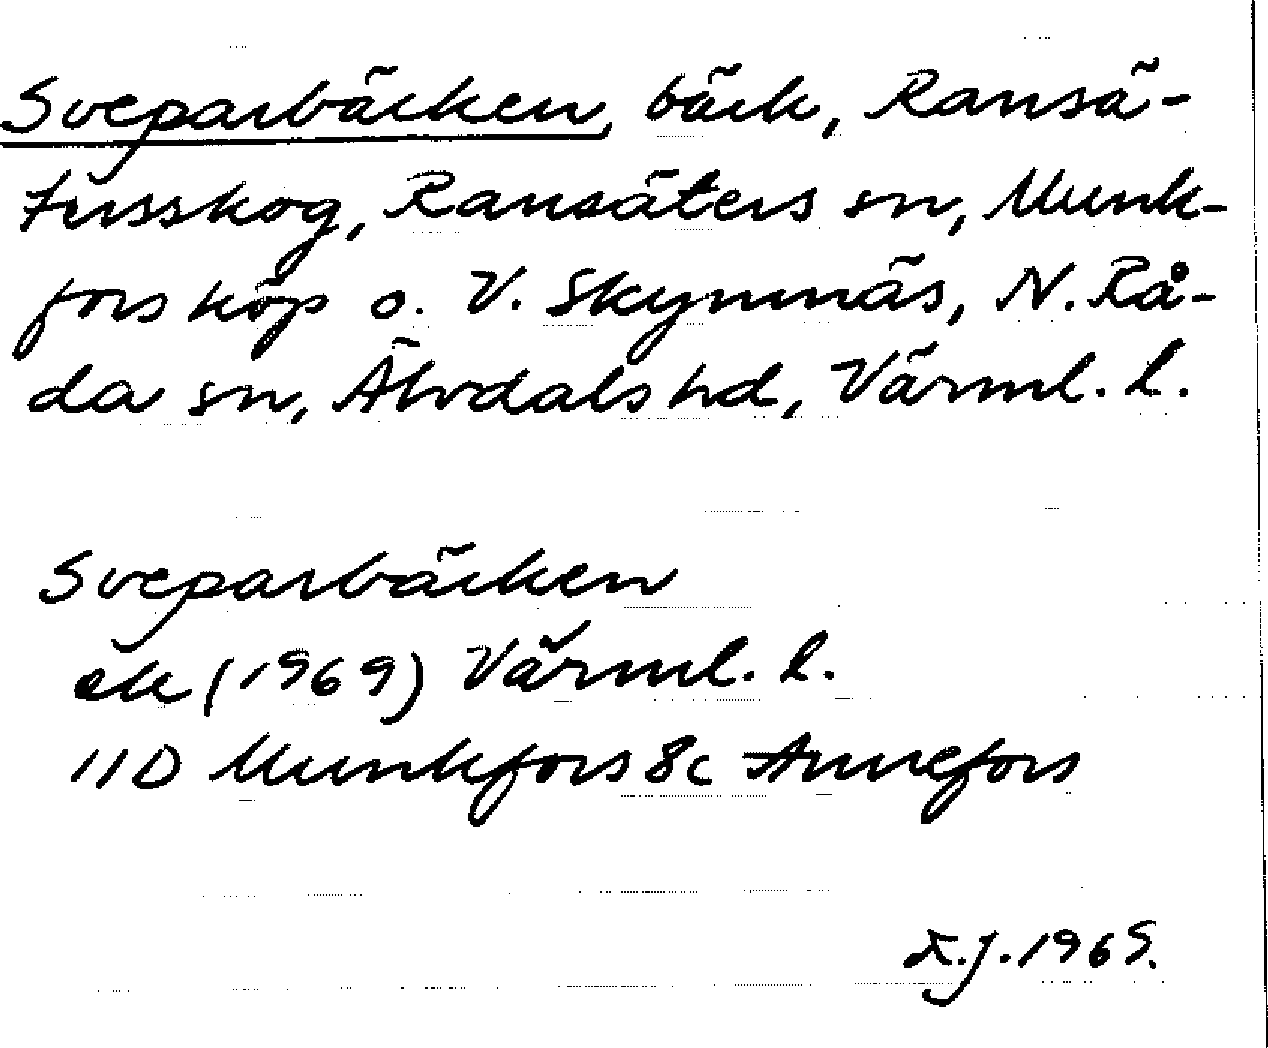 Sveparbäcken, bäck, Ransä-
tersskog, Ransäters sn, Munk-
fors köp o. V. Skymnäs, N. Rå-
da sn, Älvdals hd, Värml. l.
Sveparbäcken
ek (1969) Värml. l.
11D Munkfors 8c Annefors
1969.